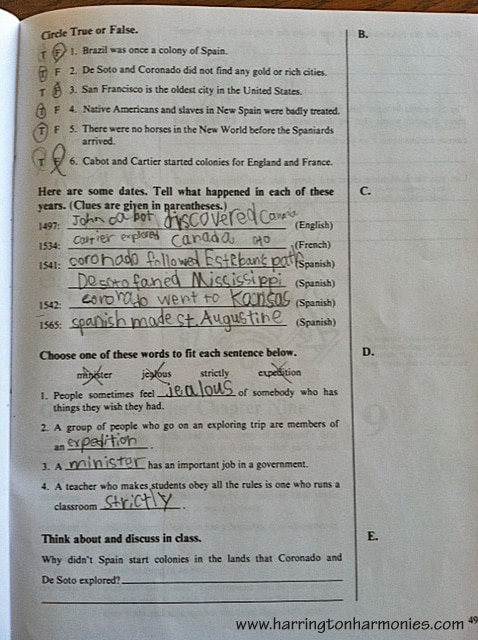 Circle True or False.
B.
T F 1. Brazil was once a colony of Spain.
T F 2. De Soto and Coronado did not find any gold or rich cities.
T F 3. San Francisco is the oldest city in the United States.
T F 4. Native Americans and slaves in New Spain were badly treated.
T F 5. There were no horses in the New World before the Spaniards
arrived.
T F 6. Cabot and Cartier started colonies for England and France.
Here are some dates. Tell what happened in each of these
C.
years. (Clues are given in parentheses.)
1497: John cabot discovered Canada (English)
1534: cartier explored canada (French)
1541: coronado followed Estebans path (Spanish)
Desoto faned Mississippi (Spanish)
1542: coronato went to Kansas (Spanish)
1565: spanish made st. Augustine (Spanish)
Choose one of these words to fit each sentence below.
D.
minister jealous strictly expedition
1. People sometimes feel jealous of somebody who has
things they wish they had.
2. A group of people who go on an exploring trip are members of
an expedition.
3. A minister has an important job in a government.
4. A teacher who makes students obey all the rules is one who runs a
classroom strictly.
Think about and discuss in class.
E.
Why didn't Spain start colonies in the lands that Coronado and
De Soto explored?
49
www.harringtonharmonies.com